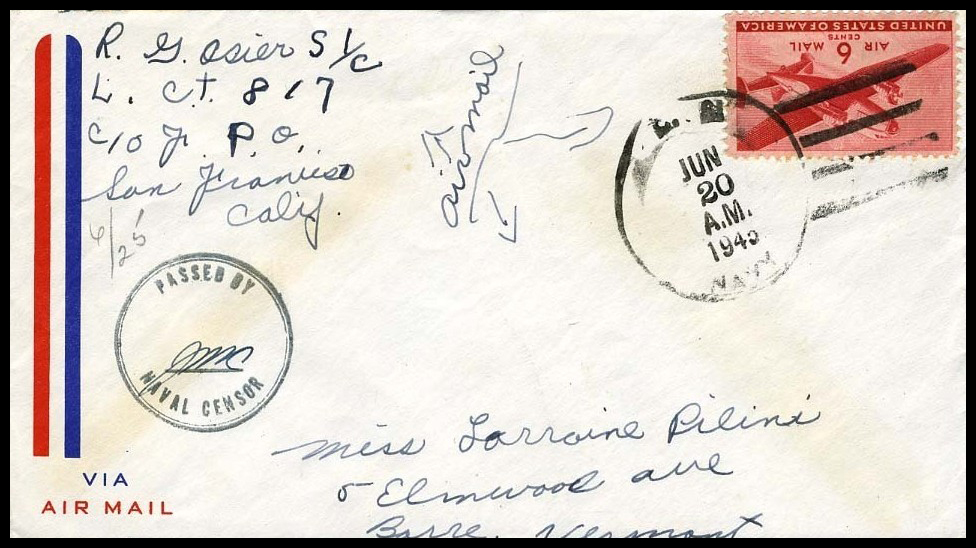 R. G. Osier S 1/c
L. C. T. 817
C/O F. P. O.
San Francisco
Calif.
6/25
airmail
UNITED STATES OF AMERICA
AIR MAIL
6 CENTS
JUN
20
A.M.
1945
NAVY
PASSED BY
NAVAL CENSOR
VIA
AIR MAIL
Miss Lorraine Pilini
5 Elmwood ave
Barre, Vermont